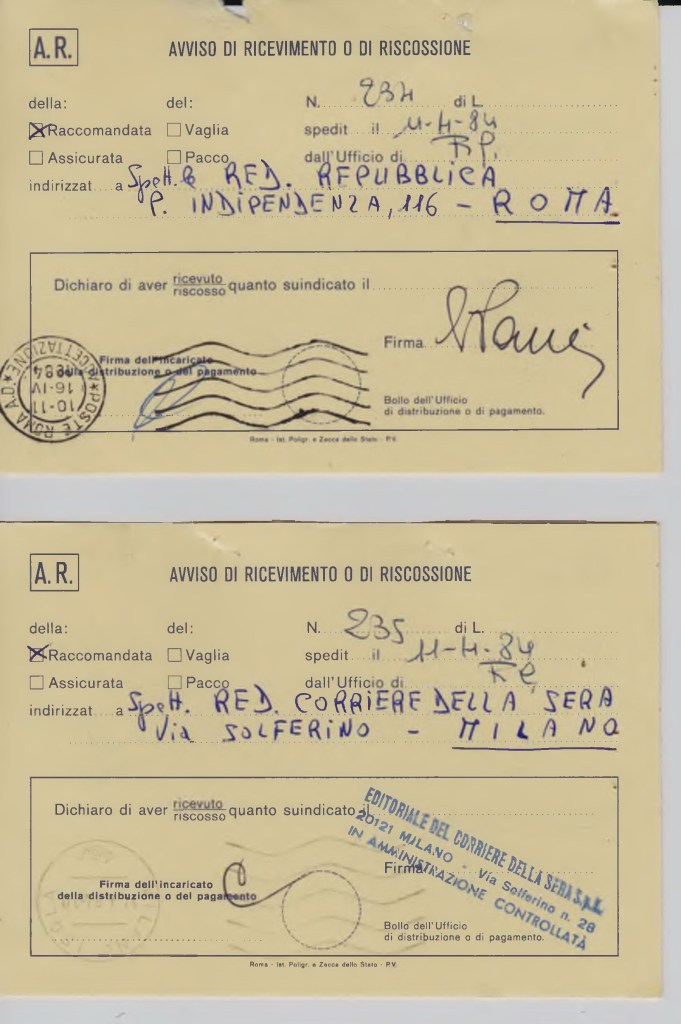 A.R. AVVISO DI RICEVIMENTO O DI RISCOSSIONE
della: del: N. 234 di L.
Raccomandata Vaglia spedit il 11-4-84
Assicurata Pacco dall'Ufficio di
indirizzat a Spett.le RED. REPUBBLICA
P. INDIPENDENZA, 116 - ROMA
Dichiaro di aver ricevuto quanto suindicato il
riscosso
Firma
Firma dell'incaricato
della distribuzione o del pagamento
Bollo dell'Ufficio
di distribuzione o di pagamento.
POSTE ROMA A.D. ACCETTAZIONE
10-11
16-IV
1984
Roma - Ist. Poligr. e Zecca dello Stato - P.V.
A.R. AVVISO DI RICEVIMENTO O DI RISCOSSIONE
della: del: N. 235 di L.
Raccomandata Vaglia spedit il 11-4-84
Assicurata Pacco dall'Ufficio di
indirizzat a Spett. RED. CORRIERE DELLA SERA
Via SOLFERINO - MILANO
Dichiaro di aver ricevuto quanto suindicato il
riscosso
EDITORIALE DEL CORRIERE DELLA SERA S.p.A.
20121 MILANO - Via Solferino n. 28
IN AMMINISTRAZIONE CONTROLLATA
Firma
Firma dell'incaricato
della distribuzione o del pagamento
Bollo dell'Ufficio
di distribuzione o di pagamento.
Roma - Ist. Poligr. e Zecca dello Stato - P.V.